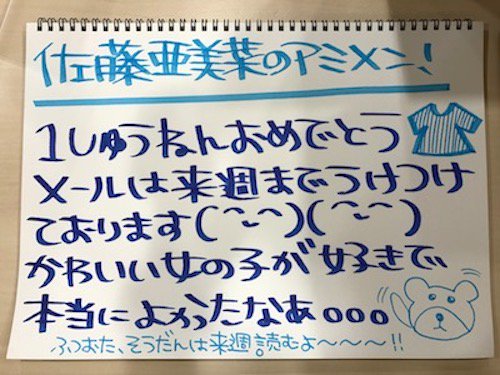 佐藤亜美菜のアミメン!
1しゅうねんおめでとう
メールは来週までうけつけ
ております(^-^)(^-^)
かわいい女の子が好きで
本当によかったなぁ。。。
ふつおた、そうだんは来週読むよ〜〜〜!!